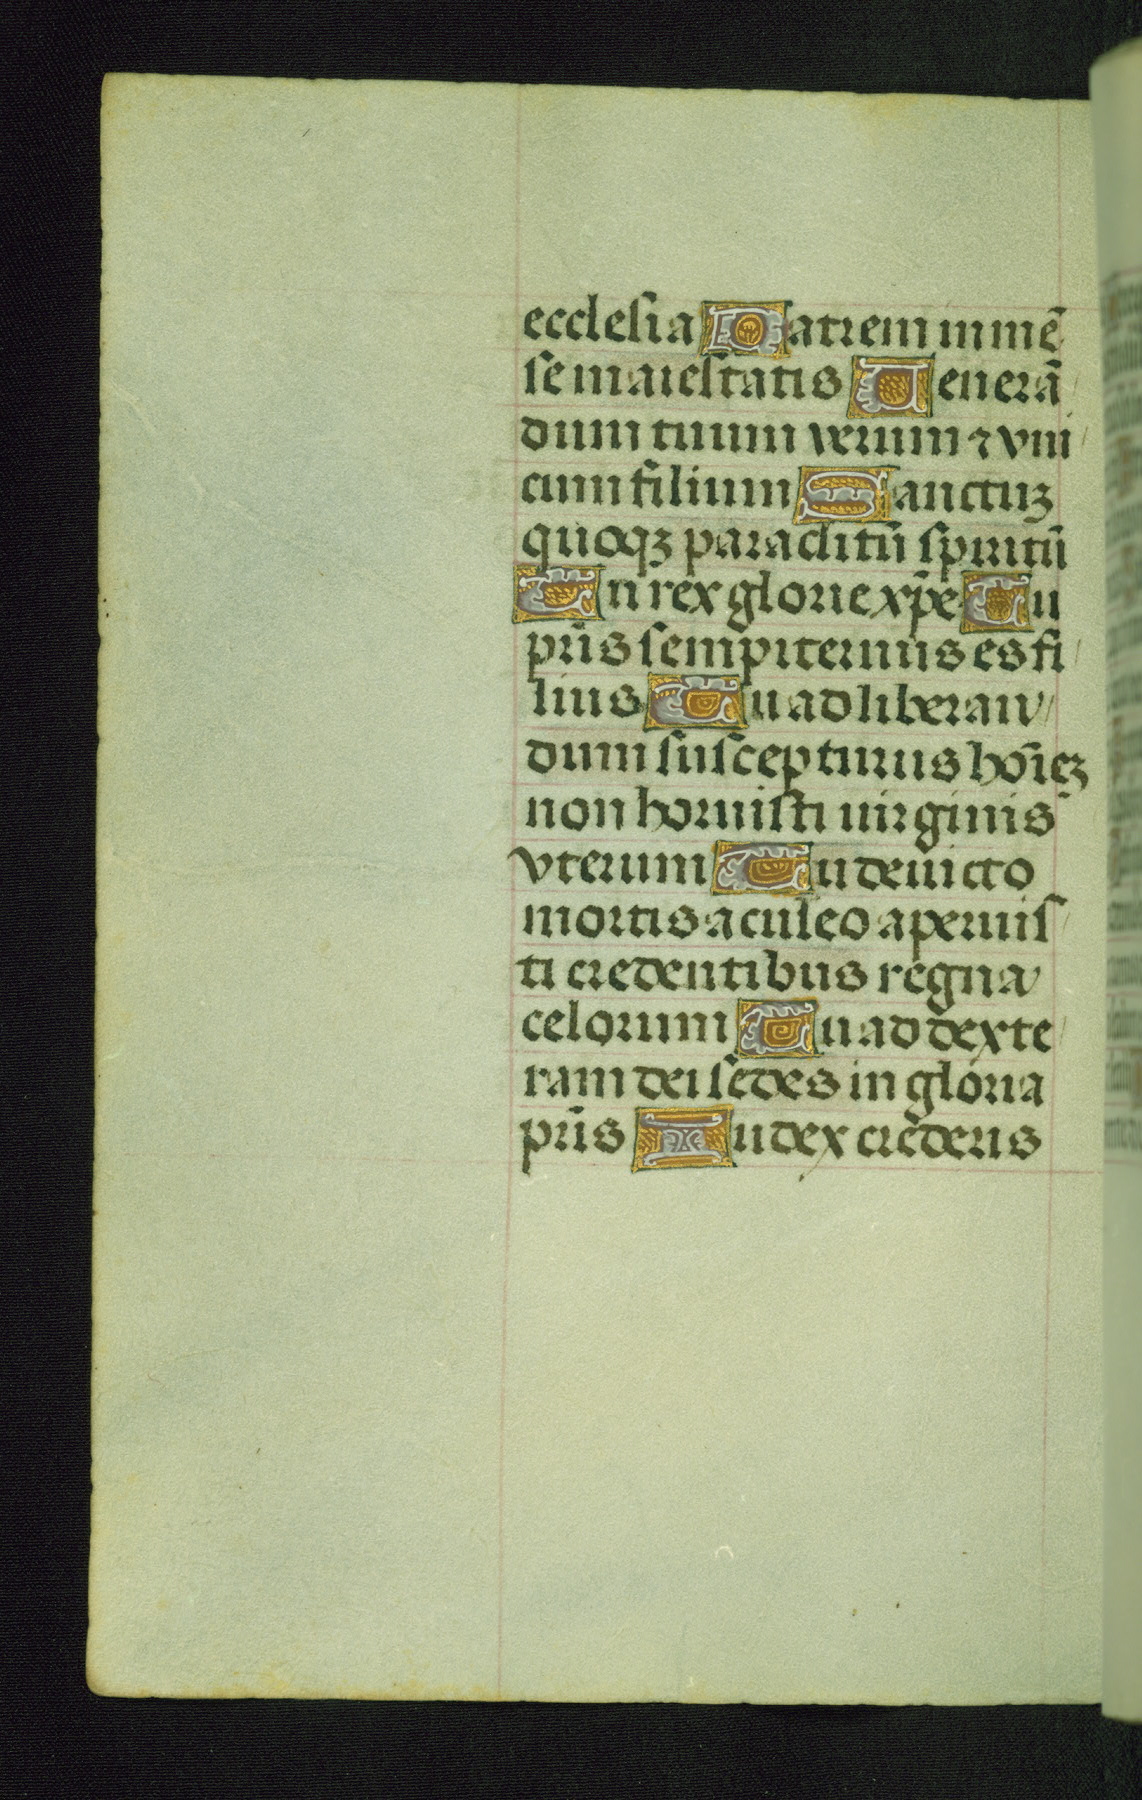 ecclesia Patrem inmē
se maiestatis Uenerā
dum tuum verum ⁊ vni
cum filium Sanctuȝ
quoqȝ paraclitū spiritū
Tu rex glorie xp̄e Tu
pr̄is sempiternus es fi
lius Tu ad liberan
dum suscepturus hoīeȝ
non horruisti uirginis
vterum Tu deuicto
mortis aculeo aperuis
ti credentibus regna
celorum Tu ad dexte
ram dei sedes in gloria
pr̄is Iudex crederis